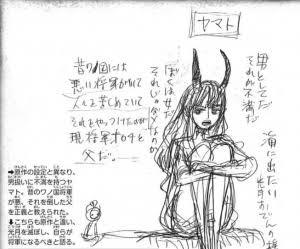 ヤマト
男としてだ
それが不満だ
ぼくは女
それじゃダメなのか
海に出たい
光月おでんの様
昔ワノ国には
悪い将軍がいて
人々を苦しめていて
それをやっつけたのが
現将軍オロチと
父だ。
➡原作の設定と異なり、
男扱いに不満を持つヤ
マト。昔のワノ国将軍
が悪、それを倒した父
を正義と教えられた。
⬇こちらも原作と違い、
光月を滅ぼし、自らが
将軍になるべきと語る。